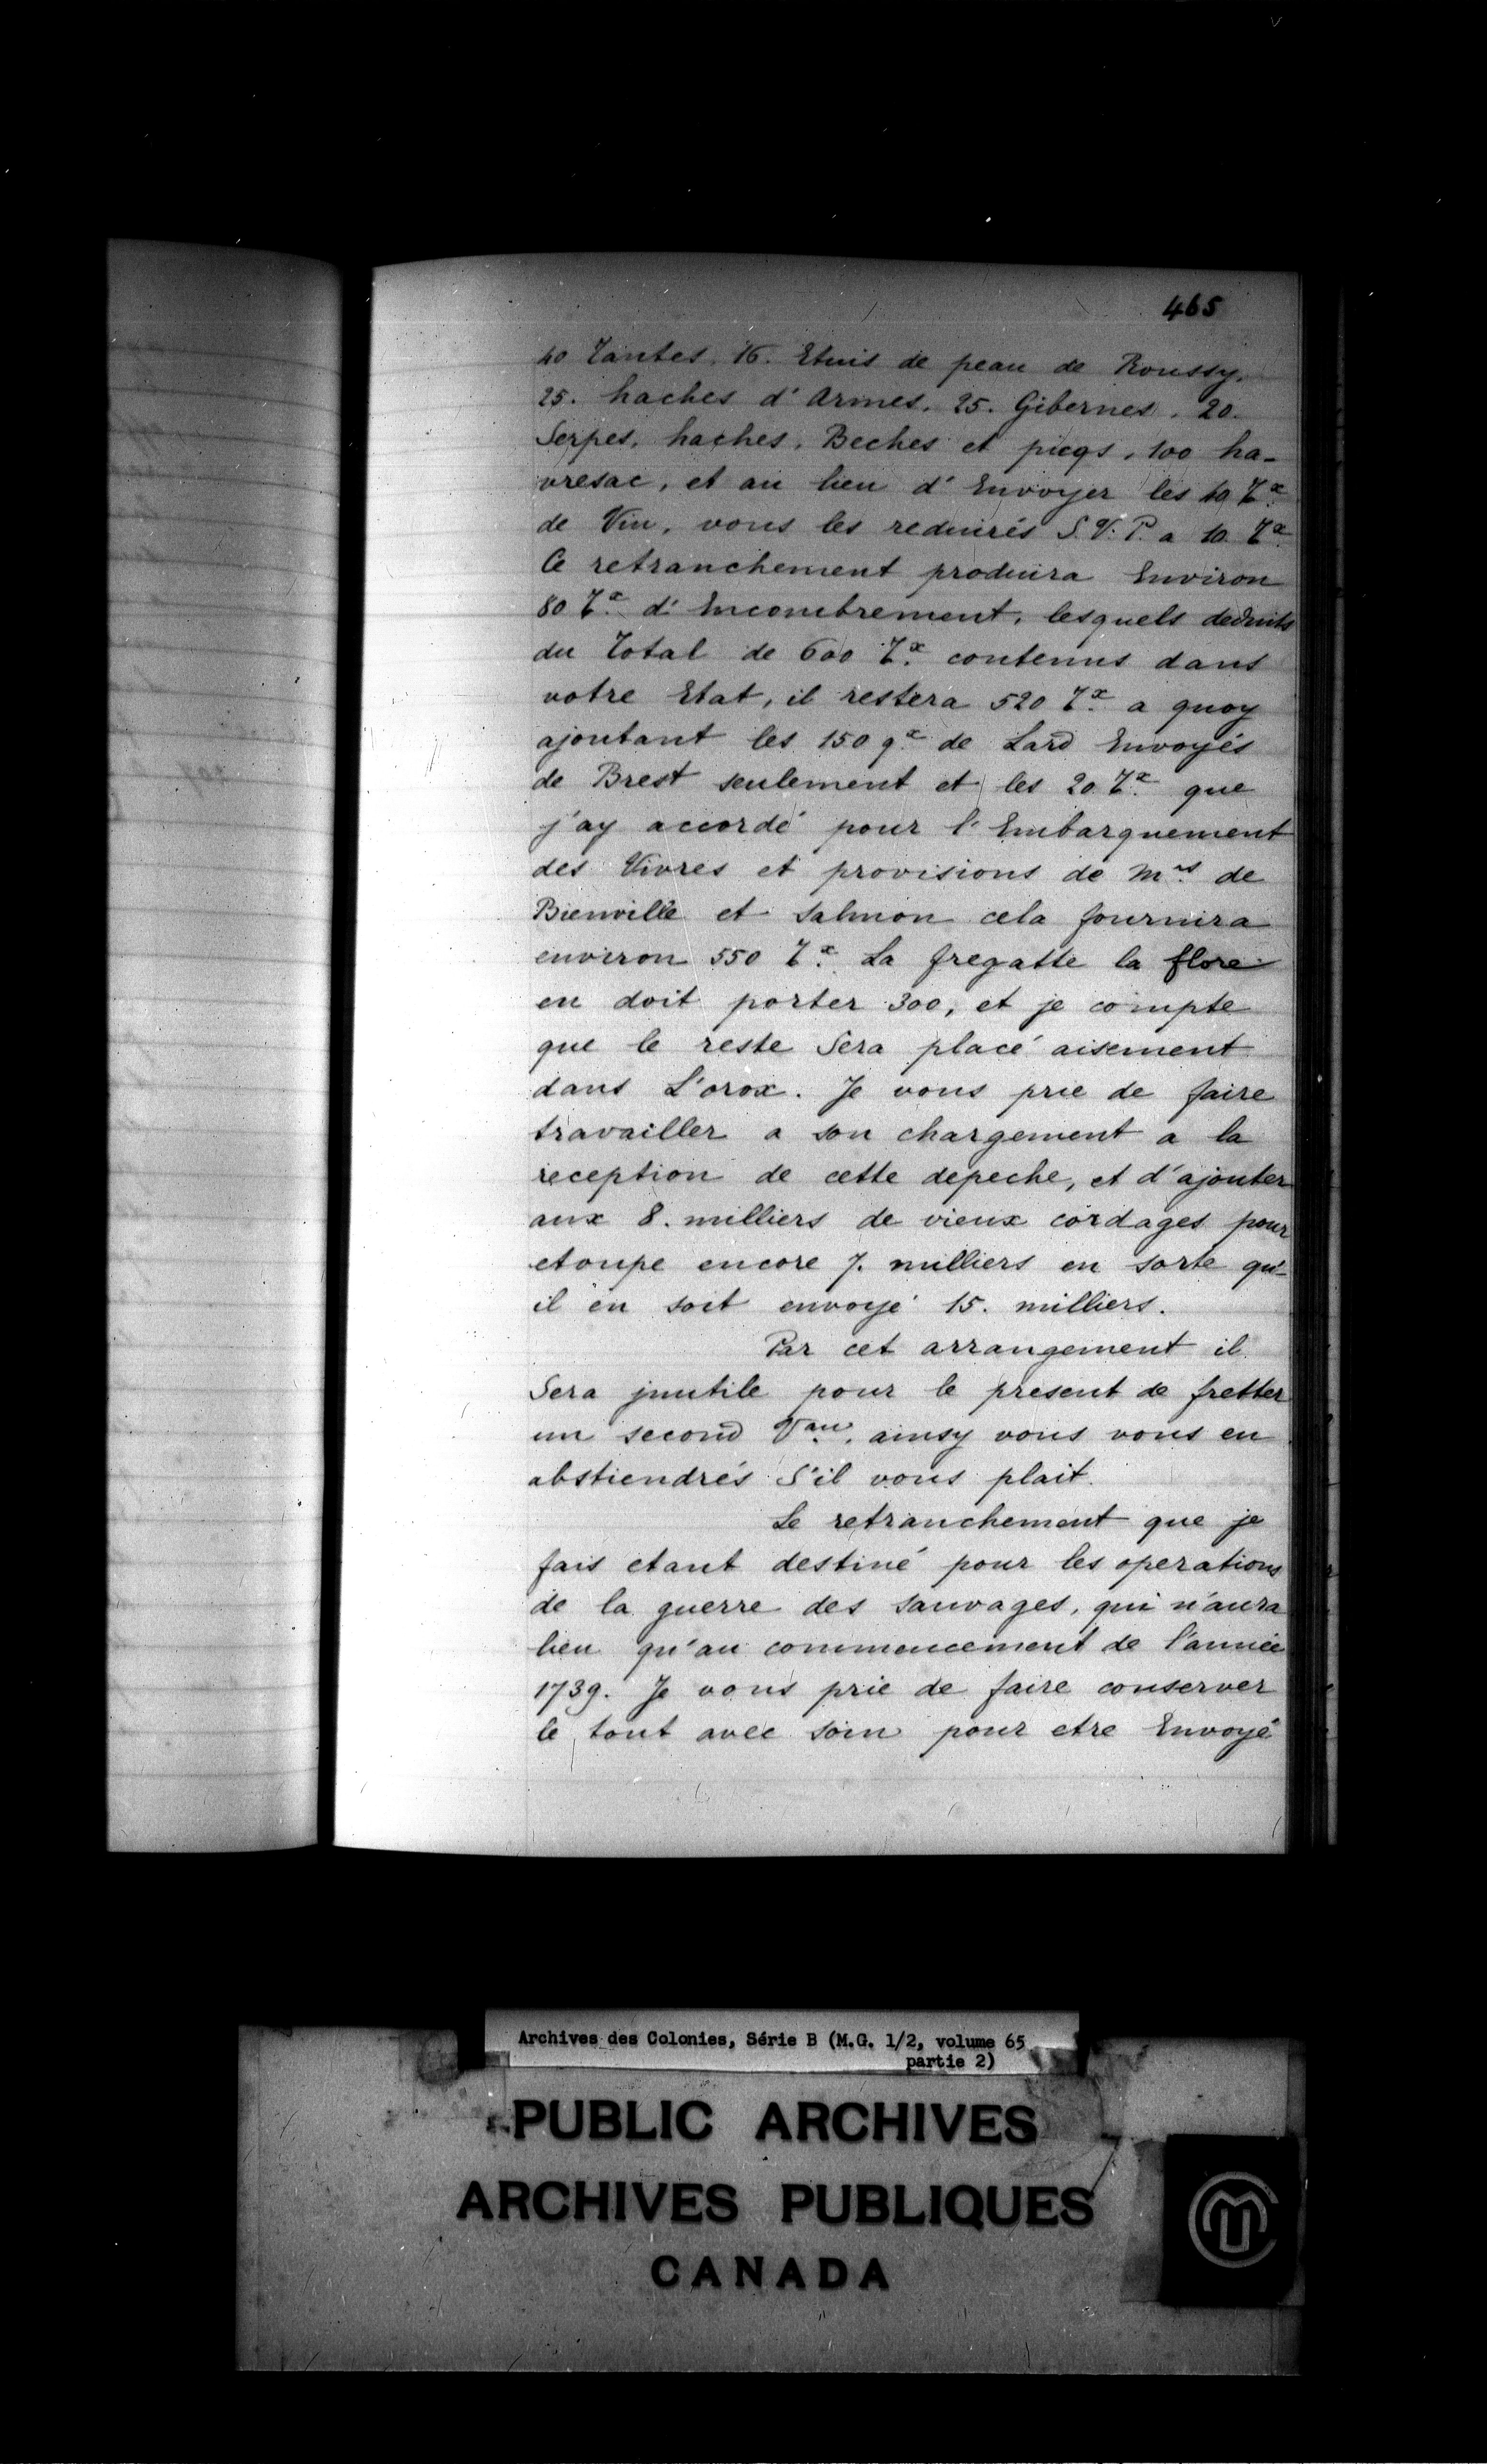 465
40 Tantes. 16. Etuis de peau de Roussy.
25. haches d'Armes. 25. Gibernes. 20.
Serpes, haches, Beches et picqs, 100 ha-
vresac, et au lieu d'Envoyer les 40 Tx.
de Vin, vous les reduirés S.V.P. a 10. Tx.
Ce retranchement produira Environ
80 Tx. d'Encombrement, lesquels deduits
du Total de 600 Tx. contenus dans
votre Etat, il restera 520 Tx. a quoy
ajoutant les 150 qx de Lard Envoyés
de Brest seulement et les 20. Tx. que
j'ay accordé pour l'Embarquement
des Vivres et provisions de Mrs. de
Bienville et Salmon cela fournira
environ 550 Tx. La fregatte la flore
en doit porter 300, et je compte
que le reste Sera placé aisement
dans L'orox. Je vous prie de faire
travailler a son chargement a la
reception de cette depeche, et d'ajouter
aux 8. milliers de vieux cordages pour
etoupe encore 7. milliers en sorte qu'-
il en soit envoyé 15. milliers.
Par cet arrangement il
Sera jnutile pour le present de fretter
un second Vau. ainsy vous vous en
abstiendrés S'il vous plait.
Le retranchement que je
fais etant destiné pour les operations
de la guerre des sauvages, qui n'aura
lieu qu'au commencement de l'année
1739. Je vous prie de faire conserver
le tout avec soin pour etre Envoyé
Archives des Colonies, Série B (M.G. 1/2, volume 65
partie 2)
PUBLIC ARCHIVES
ARCHIVES PUBLIQUES
CANADA